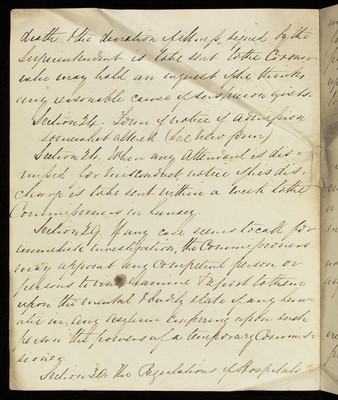 death & the duration of illness, signed by the
Superintendent is to be sent to the Coroner
who may hold an inquest if he thinks
any reasonable cause of suspicion exists.
Section 24. Form of notice of admission
somewhat altered (See New form)
Section 26. When any Attendant is dis-
missed for misconduct notice of his dis-
charge is to be sent within a week to the
Commissioners in Lunacy.
Section 29. If any case seems to call for
immediate investigation, the Commissioners
may appoint any Competent person or
persons to examine & report to them
upon the mental & bodily state of any luna-
tic in any asylum conferring upon such
person the powers of a temporary Commis-
sioner
Section 30. The Regulations of Hospitals